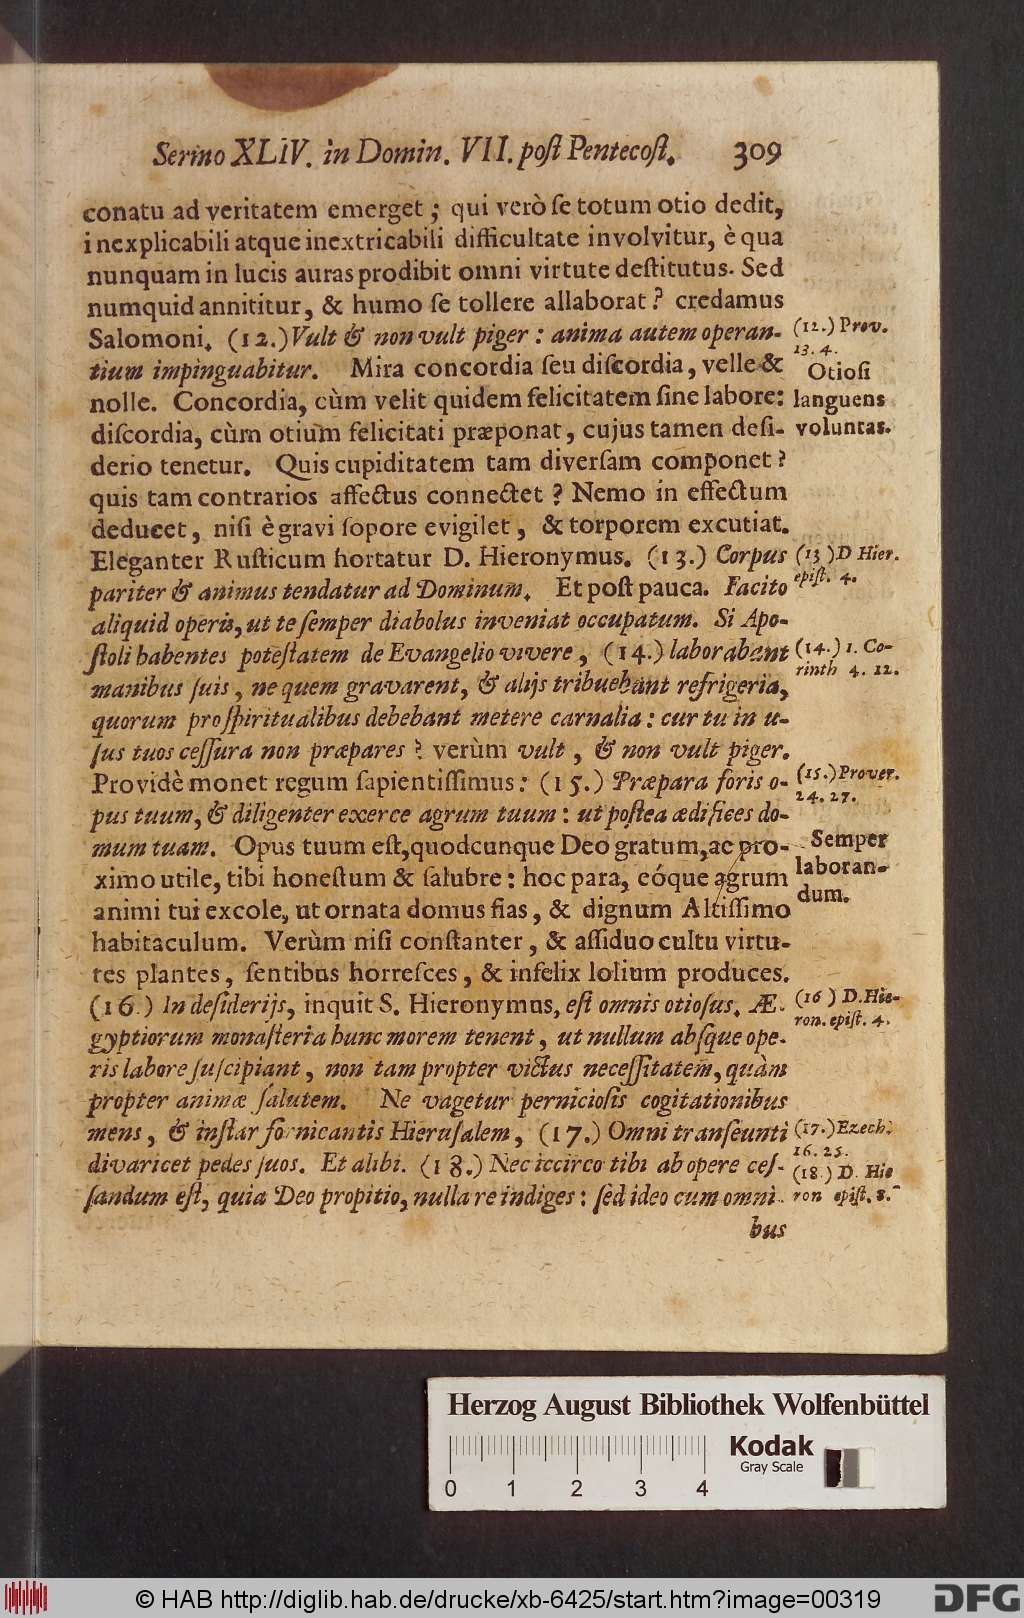 Sermo XLIV. in Domin. VII. poſt Pentecoſt. 309
conatu ad veritatem emerget; qui verò ſe totum otio dedit,
inexplicabili atque inextricabili difficultate involvitur, è qua
nunquam in lucis auras prodibit omni virtute deſtitutus. Sed
numquid annititur, & humo ſe tollere allaborat? credamus
Salomoni. (12.) Vult & non vult piger: anima autem operan-
tium impinguabitur. Mira concordia ſeu diſcordia, velle &
nolle. Concordia, cùm velit quidem felicitatem ſine labore:
diſcordia, cùm otium felicitati præponat, cujus tamen deſi-
derio tenetur. Quis cupiditatem tam diverſam componet?
quis tam contrarios affectus connectet? Nemo in effectum
deducet, niſi è gravi ſopore evigilet, & torporem excutiat.
Eleganter Ruſticum hortatur D. Hieronymus. (13.) Corpus
pariter & animus tendatur ad Dominum. Et poſt pauca. Facito
aliquid operis, ut te ſemper diabolus inveniat occupatum. Si Apo-
ſtoli habentes poteſtatem de Evangelio vivere, (14.) laborabant
manibus ſuis, ne quem gravarent, & alijs tribuebant refrigeria,
quorum pro ſpiritualibus debebant metere carnalia: cur tu in u-
ſus tuos ceſſura non præpares? verùm vult, & non vult piger.
Providè monet regum ſapientiſſimus: (15.) Præpara foris o-
pus tuum, & diligenter exerce agrum tuum: ut poſtea ædifices do-
mum tuam. Opus tuum eſt, quodcunque Deo gratum, ac pro-
ximo utile, tibi honeſtum & ſalubre: hoc para, eóque agrum
animi tui excole, ut ornata domus fias, & dignum Altiſſimo
habitaculum. Verùm niſi conſtanter, & aſſiduo cultu virtu-
tes plantes, ſentibus horreſces, & infelix lolium produces.
(16.) In deſiderijs, inquit S. Hieronymus, eſt omnis otioſus. Æ-
gyptiorum monaſteria hunc morem tenent, ut nullum abſque ope-
ris labore ſuſcipiant, non tam propter victus neceſſitatem, quàm
propter animæ ſalutem. Ne vagetur pernicioſis cogitationibus
mens, & inſtar fornicantis Hieruſalem, (17.) Omni tranſeunti
divaricet pedes ſuos. Et alibi. (18.) Nec iccirco tibi ab opere ceſ-
ſandum eſt, quia Deo propitio, nulla re indiges: ſed ideo cum omni-
bus
(12.) Prov.
13. 4.
Otioſi
languens
voluntas.
(13) D Hier.
epiſt. 4.
(14.) 1. Co-
rinth 4. 12.
(15.) Prover.
24. 27.
Semper
laboran-
dum.
(16) D. Hie-
ron. epiſt. 4.
(17.) Ezech.
16. 25.
(18.) D. Hie
ron epiſt. 8.
Herzog August Bibliothek Wolfenbüttel
Kodak
Gray Scale
0 1 2 3 4
© HAB http://diglib.hab.de/drucke/xb-6425/start.htm?image=00319
DFG